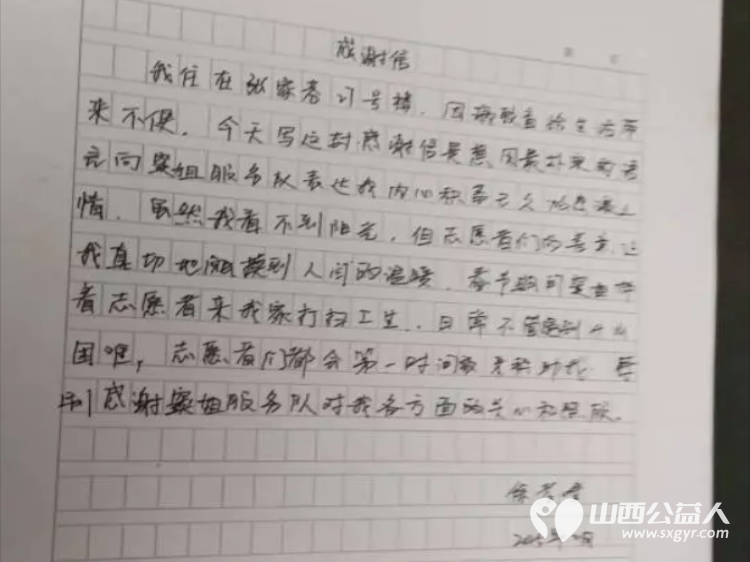 感谢信
我住在张家巷21号楼,因病致盲给生活带
来不便。今天写这封感谢信是想用最朴实的语
言向窦姐服务队表达我内心积蓄已久的感激之
情。虽然我看不到阳光,但志愿者们的善意让
我真切地触摸到人间的温暖。春节期间窦姐带
着志愿者来我家打扫卫生,日常不管遇到什么
困难,志愿者们都会第一时间赶来帮助我。
感谢窦姐服务队对我各方面的关心和照顾。
山西公益人
www.sxgyr.com